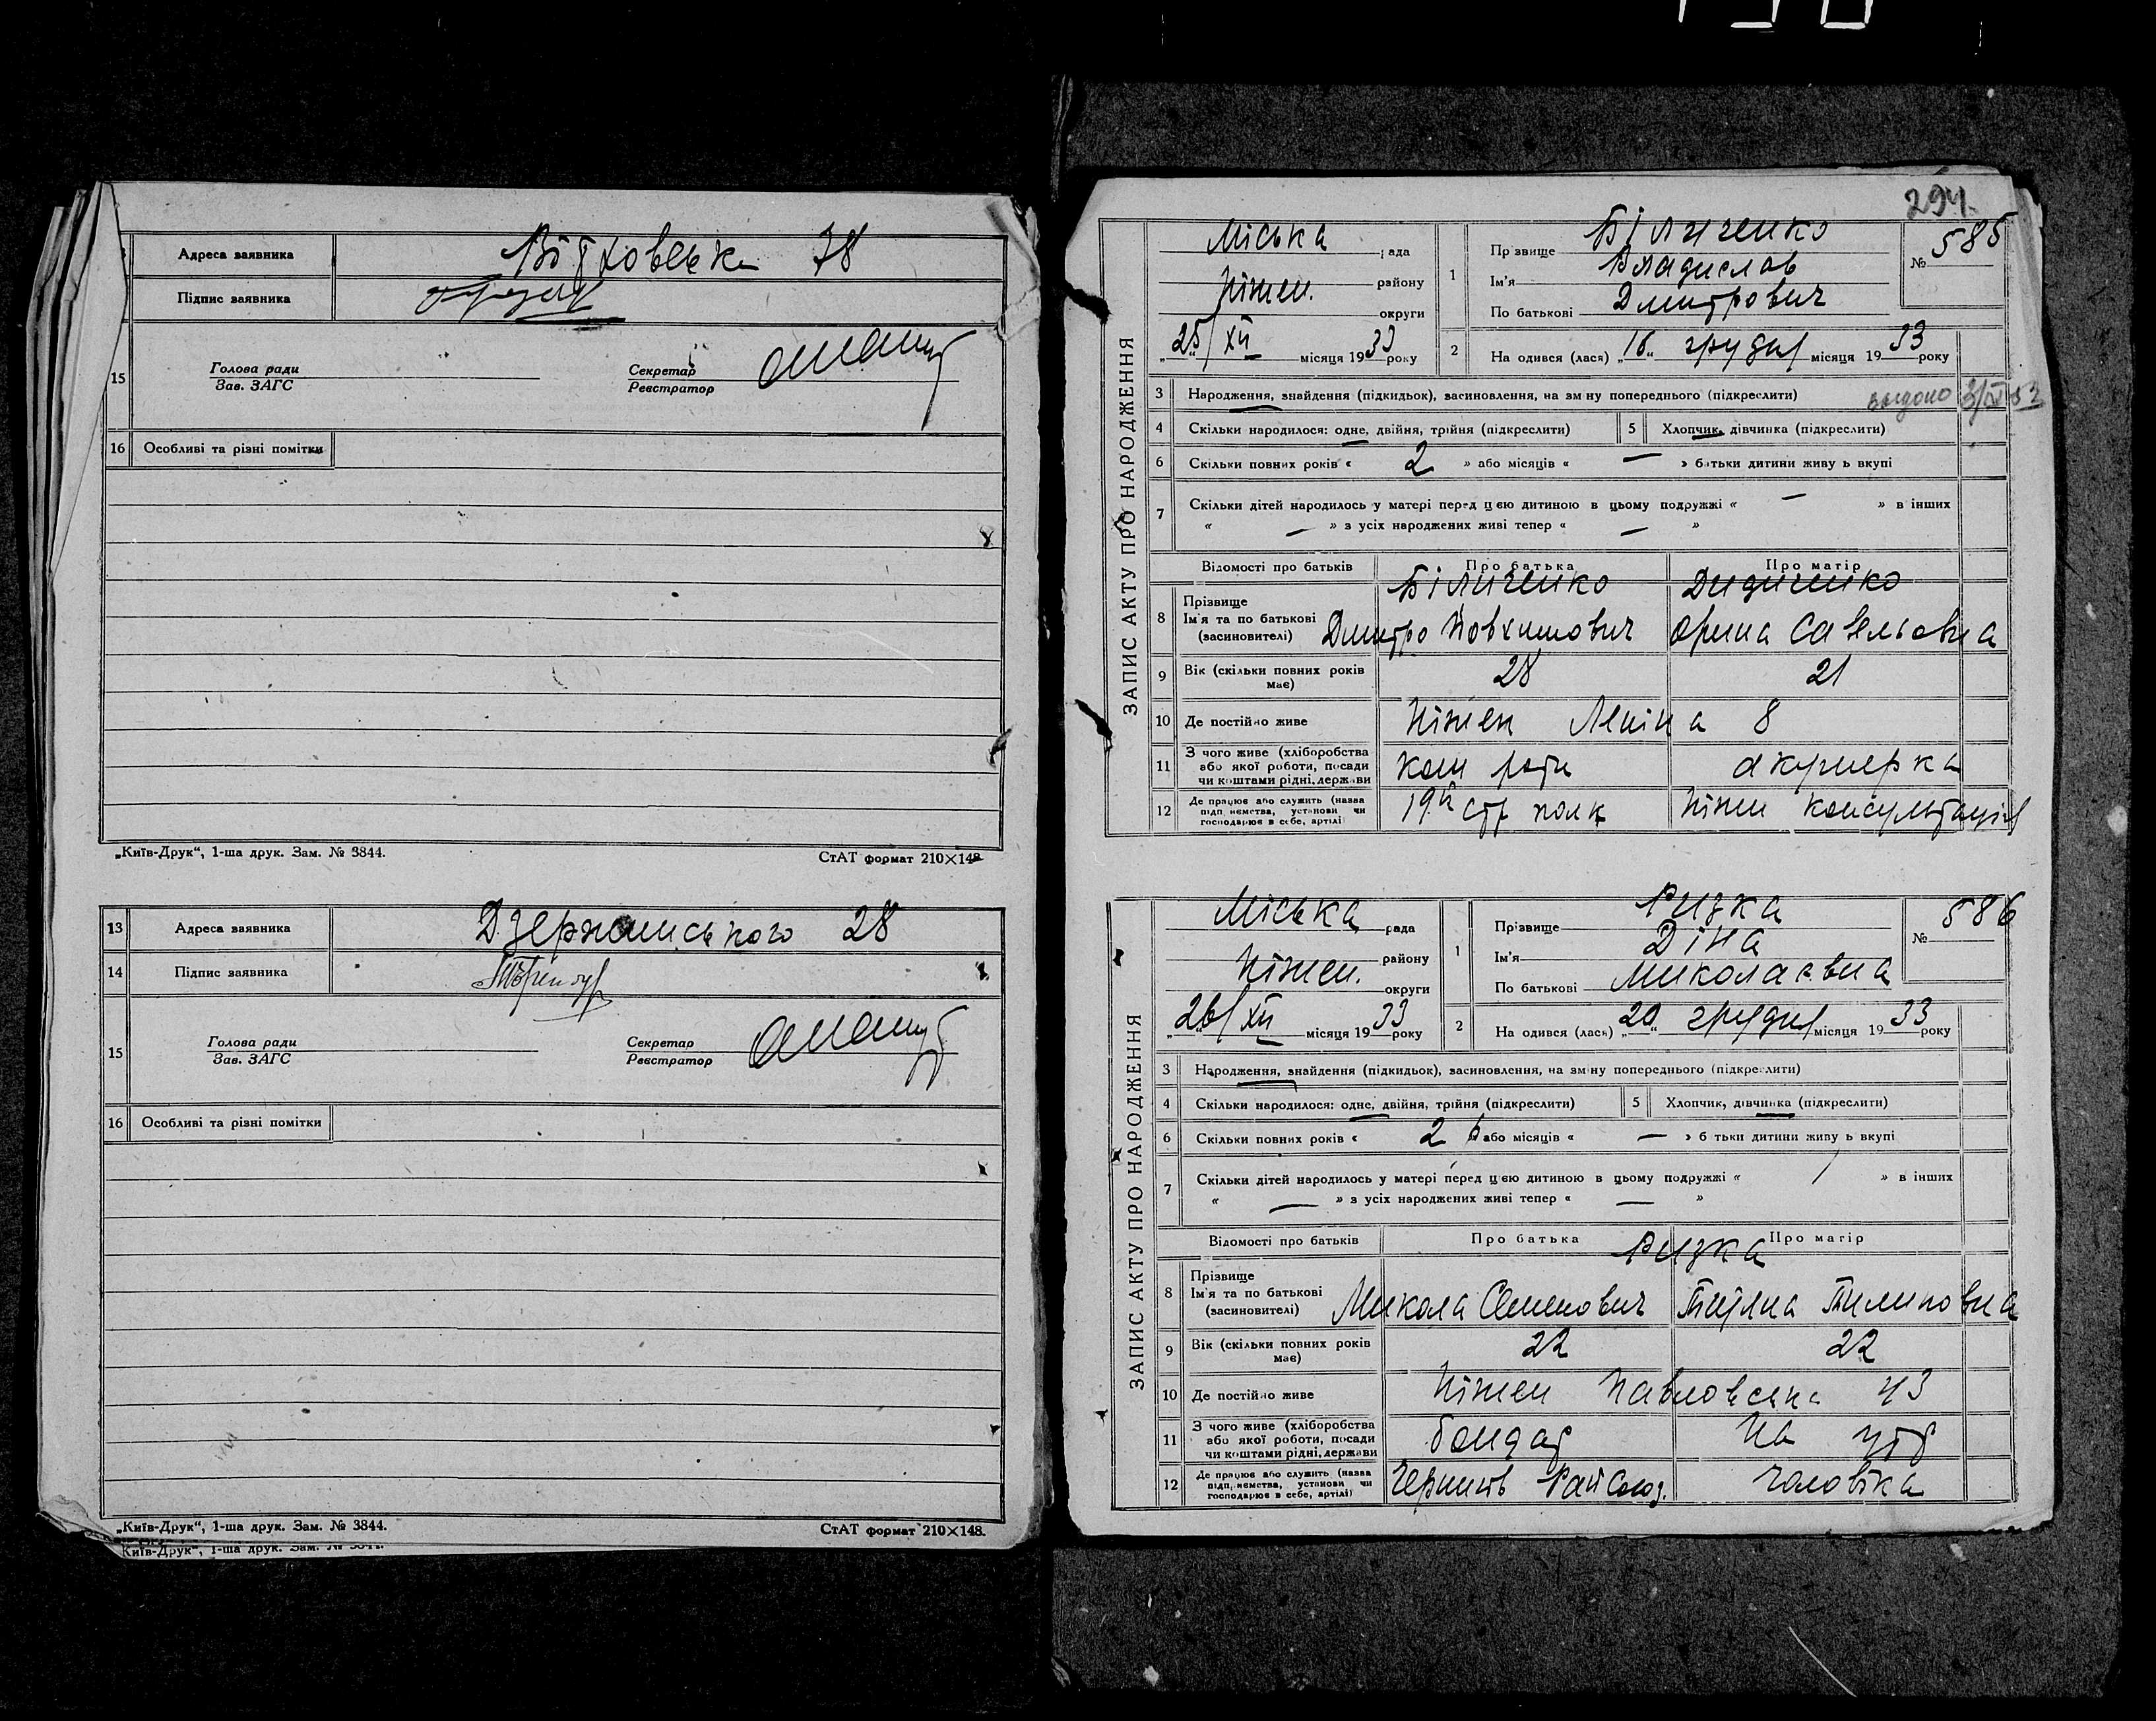 Адреса заявника 78
Підпис заявника
15 Голова ради Секретар
Зав. ЗАГС Реєстратор
16 Особливі та різні помітки
„Київ-Друк“, 1-ша друк. Зам. № 3844. СтАТ формат 210×148
13 Адреса заявника Дзержинського 28
14 Підпис заявника
15 Голова ради Секретар
Зав. ЗАГС Реєстратор
16 Особливі та різні помітки
„Київ-Друк“, 1-ша друк. Зам. № 3844. СтАТ формат 210×148.
Київ-Друк“, 1-ша друк. Зам. № 3844.
294
ЗАПИС АКТУ ПРО НАРОДЖЕННЯ
Міська рада
Ніжен. району
округи
„25/XII місяця 1933 року
1 Прзвище Біличенко № 585
Ім'я Владислав
По батькові Дмитрович
2 На одився (лася) „16“ грудня місяця 1933 року
3 Народження, знайдення (підкидьок), засиновлення, на зм ну попереднього (підкреслити) видано
4 Скільки народилося: одне, двійня, трійня (підкреслити) 5 Хлопчик, дівчинка (підкреслити)
6 Скільки повних років « 2 » або місяців « — » батьки дитини живу ь вкупі
7 Скільки дітей народилось у матері перед цією дитиною в цьому подружжі « — » в інших
« — » з усіх народжених живі тепер « — »
Відомості про батьків Про батька Про матір
8 Прізвище Біличенко Дидиченко
Ім'я та по батькові (засиновителі) Дмитро Йовхимович Орина Савельовна
9 Вік (скільки повних років має) 28 21
10 Де постійно живе Ніжен Леніна 8
11 З чого живе (хліборобства або якої роботи, посади чи коштами рідні, держави Ком роти акушерка
12 Де працює або служить (назва підп, ємства, установи чи господарює в себе, артілі) 19й стр полк Ніжен консультація
ЗАПИС АКТУ ПРО НАРОДЖЕННЯ
Міська рада
Ніжен. району
округи
„26/XII місяця 1933 року
1 Прізвище Ризка № 586
Ім'я Діна
По батькові Миколаєвна
2 На одився (лася) „20“ грудня місяця 1933 року
3 Народження, знайдення (підкидьок), засиновлення, на зм ну попереднього (підкреслити)
4 Скільки народилося: одне, двійня, трійня (підкреслити) 5 Хлопчик, дівчинка (підкреслити)
6 Скільки повних років « 2 » або місяців « — » б тьки дитини живу ь вкупі
7 Скільки дітей народилось у матері перед цією дитиною в цьому подружжі « / » в інших
« — » з усіх народжених живі тепер « — »
Відомості про батьків Про батька Про матір
8 Прізвище Ризка
Ім'я та по батькові (засиновителі) Микола Семенович
9 Вік (скільки повних років має) 22 22
10 Де постійно живе Ніжен Павловська 43
11 З чого живе (хліборобства або якої роботи, посади чи коштами рідні, держави бондар На утр
12 Де працює або служить (назва підп, ємства, установи чи господарює в себе, артілі) Райсоюз. чоловіка